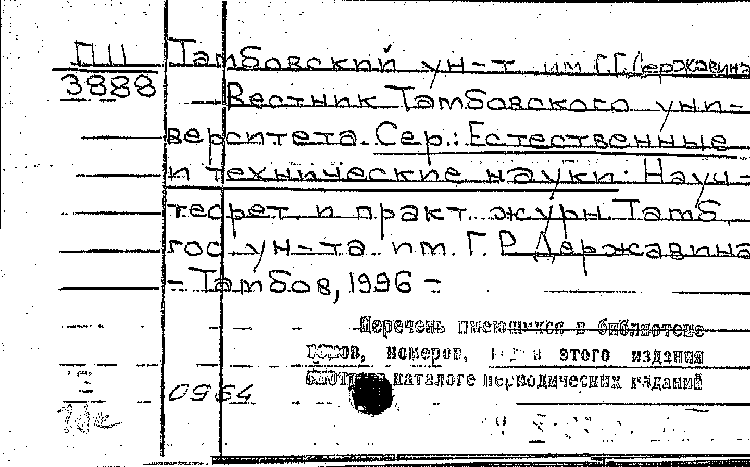 П11 Тамбовский ун-т им. Г.Р. Державина
3888 Вестник Тамбовского уни-
верситета. Сер.: Естественные
и технические науки: Науч-
теорет. и практ. журн. Тамб.
гос. ун-та им. Г.Р. Державина
- Тамбов, 1996 -
Перечень имеющихся в библиотеке
томов, номеров, этого издания
каталоге периодических изданий